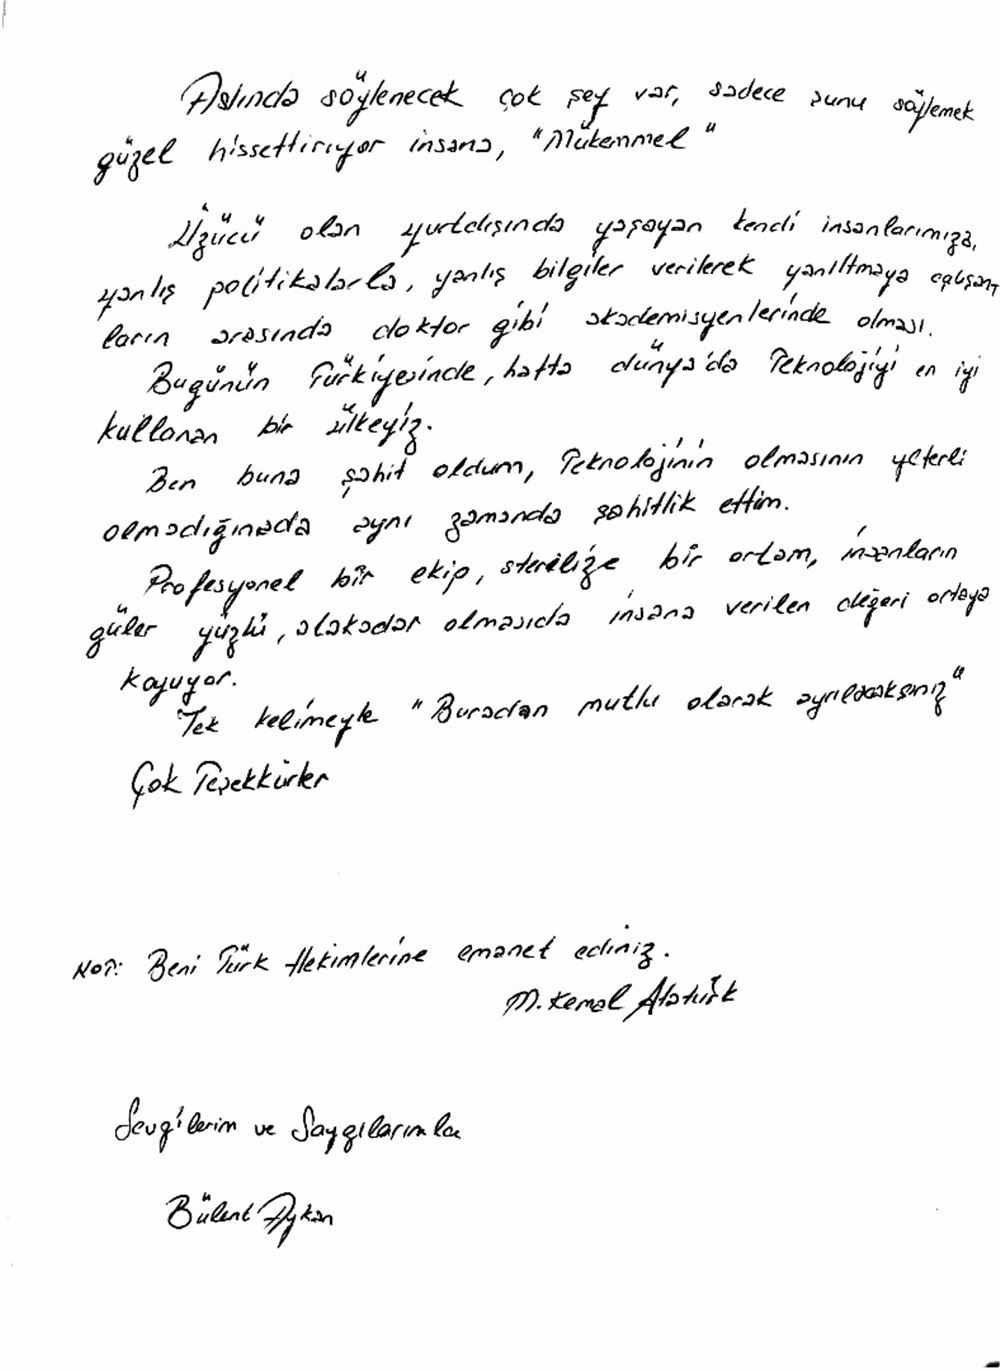 Aslında söylenecek çok şey var, sadece şunu söylemek
güzel hissettiriyor insana, "Mükemmel"
Üzücü olan yurtdışında yaşayan kendi insanlarımıza,
yanlış politikalarla, yanlış bilgiler verilerek yanıltmaya çalışan,
ların arasında doktor gibi akademisyenlerinde olması.
Bugünün Türkiyesinde, hatta dünya'da Teknolojiyi en iyi
kullanan bir ülkeyiz.
Ben buna şahit oldum, Teknolojinin olmasının yeterli
olmadığınada aynı zamanda şahitlik ettim.
Profesyonel bir ekip, sterilize bir ortam, insanların
güler yüzlü, alakadar olmasıda insana verilen değeri ortaya
koyuyor.
Tek kelimeyle "Buradan mutlu olarak ayrılacaksınız"
Çok Teşekkürler
NOT: Beni Türk Hekimlerine emanet ediniz.
M. Kemal Atatürk
Sevgilerim ve Saygılarımla
Bülent Aykan